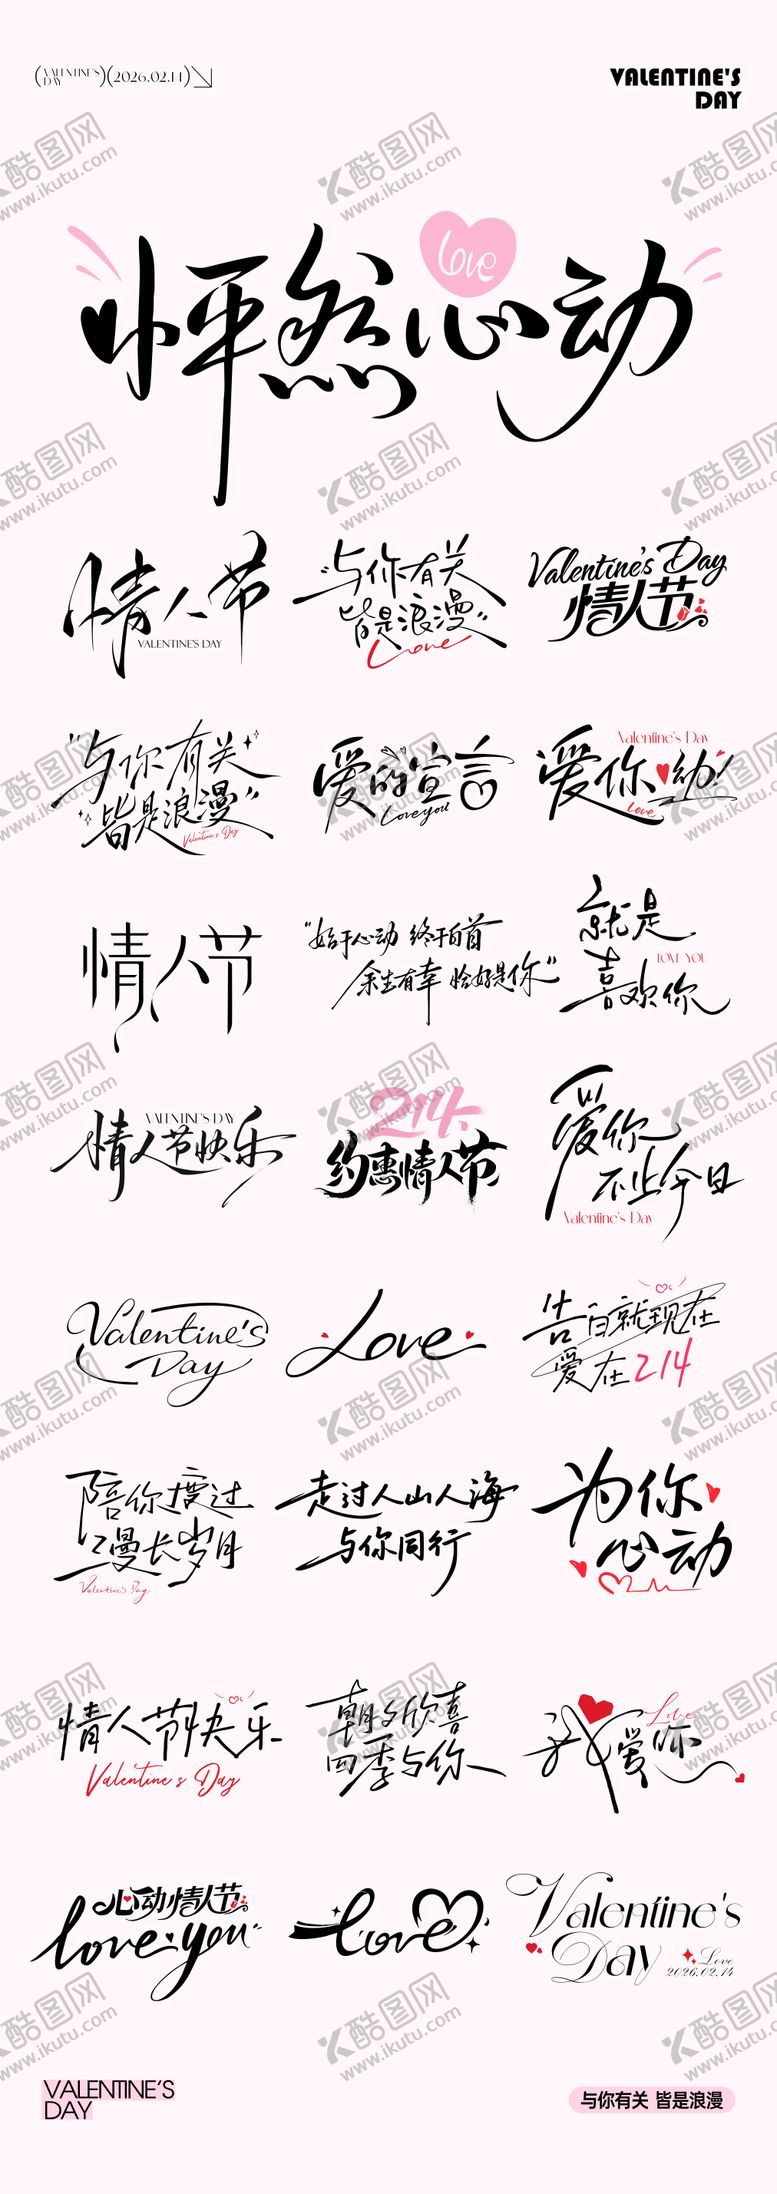 (VALENTINE'S DAY)(2026.02.14)
VALENTINE'S
DAY
love
怦然心动
情人节
VALENTINE'S DAY
"与你有关
皆是浪漫"
Love
Valentine's Day
情人节
"与你有关
皆是浪漫"
Valentine's Day
爱的宣言
Love you
Valentine's Day
爱你心动!
Love
情人节
"始于心动 终于白首
余生有幸 恰好是你"
就是
LOVE YOU
喜欢你
VALENTINE'S DAY
情人节快乐
214
约惠情人节
爱你
不止今日
Valentine's Day
Valentine's
Day
Love
告白就现在
爱在214
陪你度过
漫长岁月
Valentine's Day
走过人山人海
与你同行
为你
心动
情人节快乐
Valentine's Day
朝夕欣喜
四季与你
Love
我爱你
心动情人节
love you
love
Valentine's
Day
Love
2026.02.14
VALENTINE'S
DAY
与你有关 皆是浪漫
酷图网
www.ikutu.com